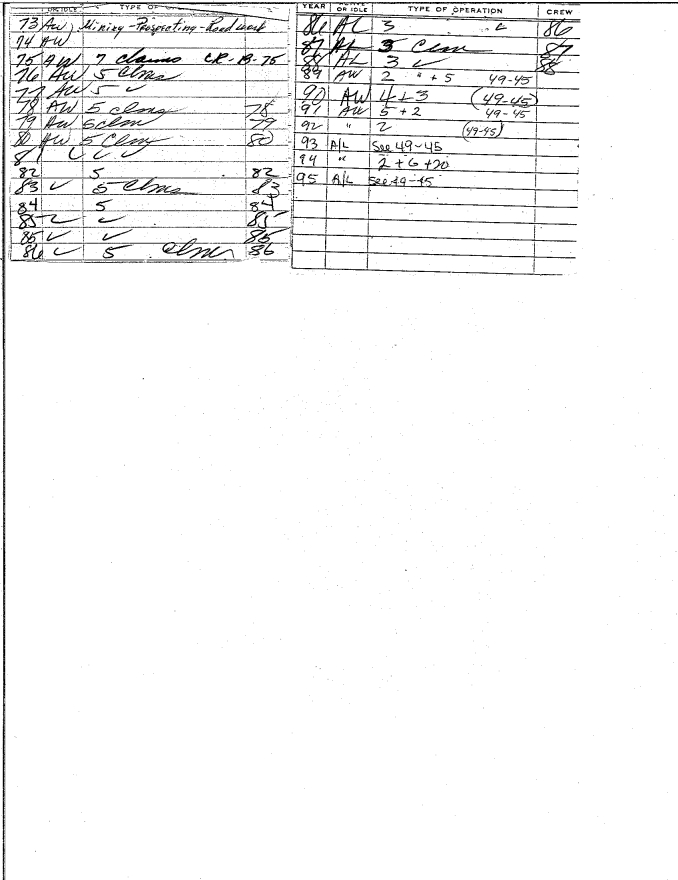 OR IDLE TYPE OF
73 AW Mining-Prospecting-Road work
74 AW
75 AW 7 claims CR-B-75
76 AW 5 Clms
77 AW 5 ✓
78 AW 5 clms 78
79 AW 5 clm 79
80 AW 5 Clms 80
81 ✓ ✓ ✓
82 5 82
83 ✓ 5 Clms 83
84 5 84
85 ✓ ✓ 85
85 ✓ ✓ 85
86 ✓ 5 Clms 86
YEAR OR IDLE TYPE OF OPERATION CREW
86 AL 3 " 86
87 AL 3 Clm 87
88 AL 3 ✓ 88
89 AW 2 " + 5 49-45
90 AW 4+3 (49-45)
91 AW 5 + 2 49-45
92 " 2 (49-45)
93 A/L See 49-45
94 " 2 + 6 + 20
95 A/L See 49-45